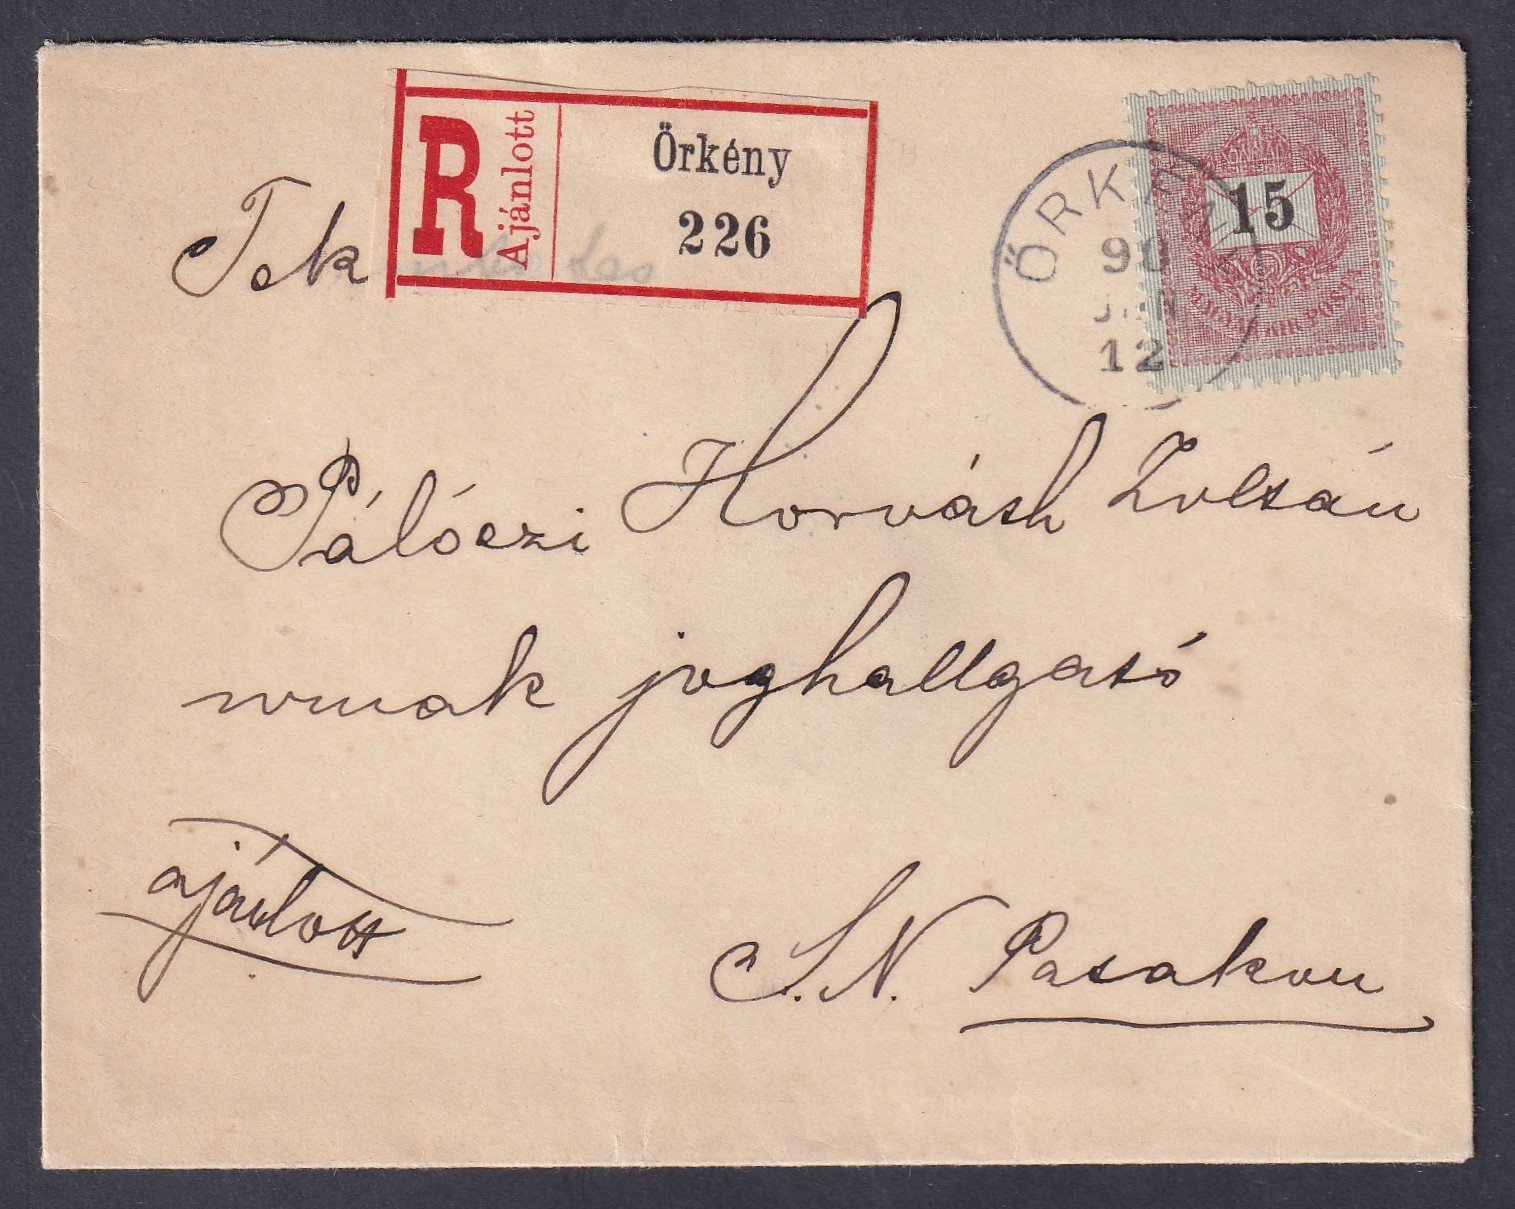 R Ajánlott
Örkény
226
Tek
15
MAGYAR KIR. POSTA
ÖRKÉNY
90
JAN
12
Pálóczi Horváth Zoltán
urnak joghallgató
ajánlott
S. N. Patakon